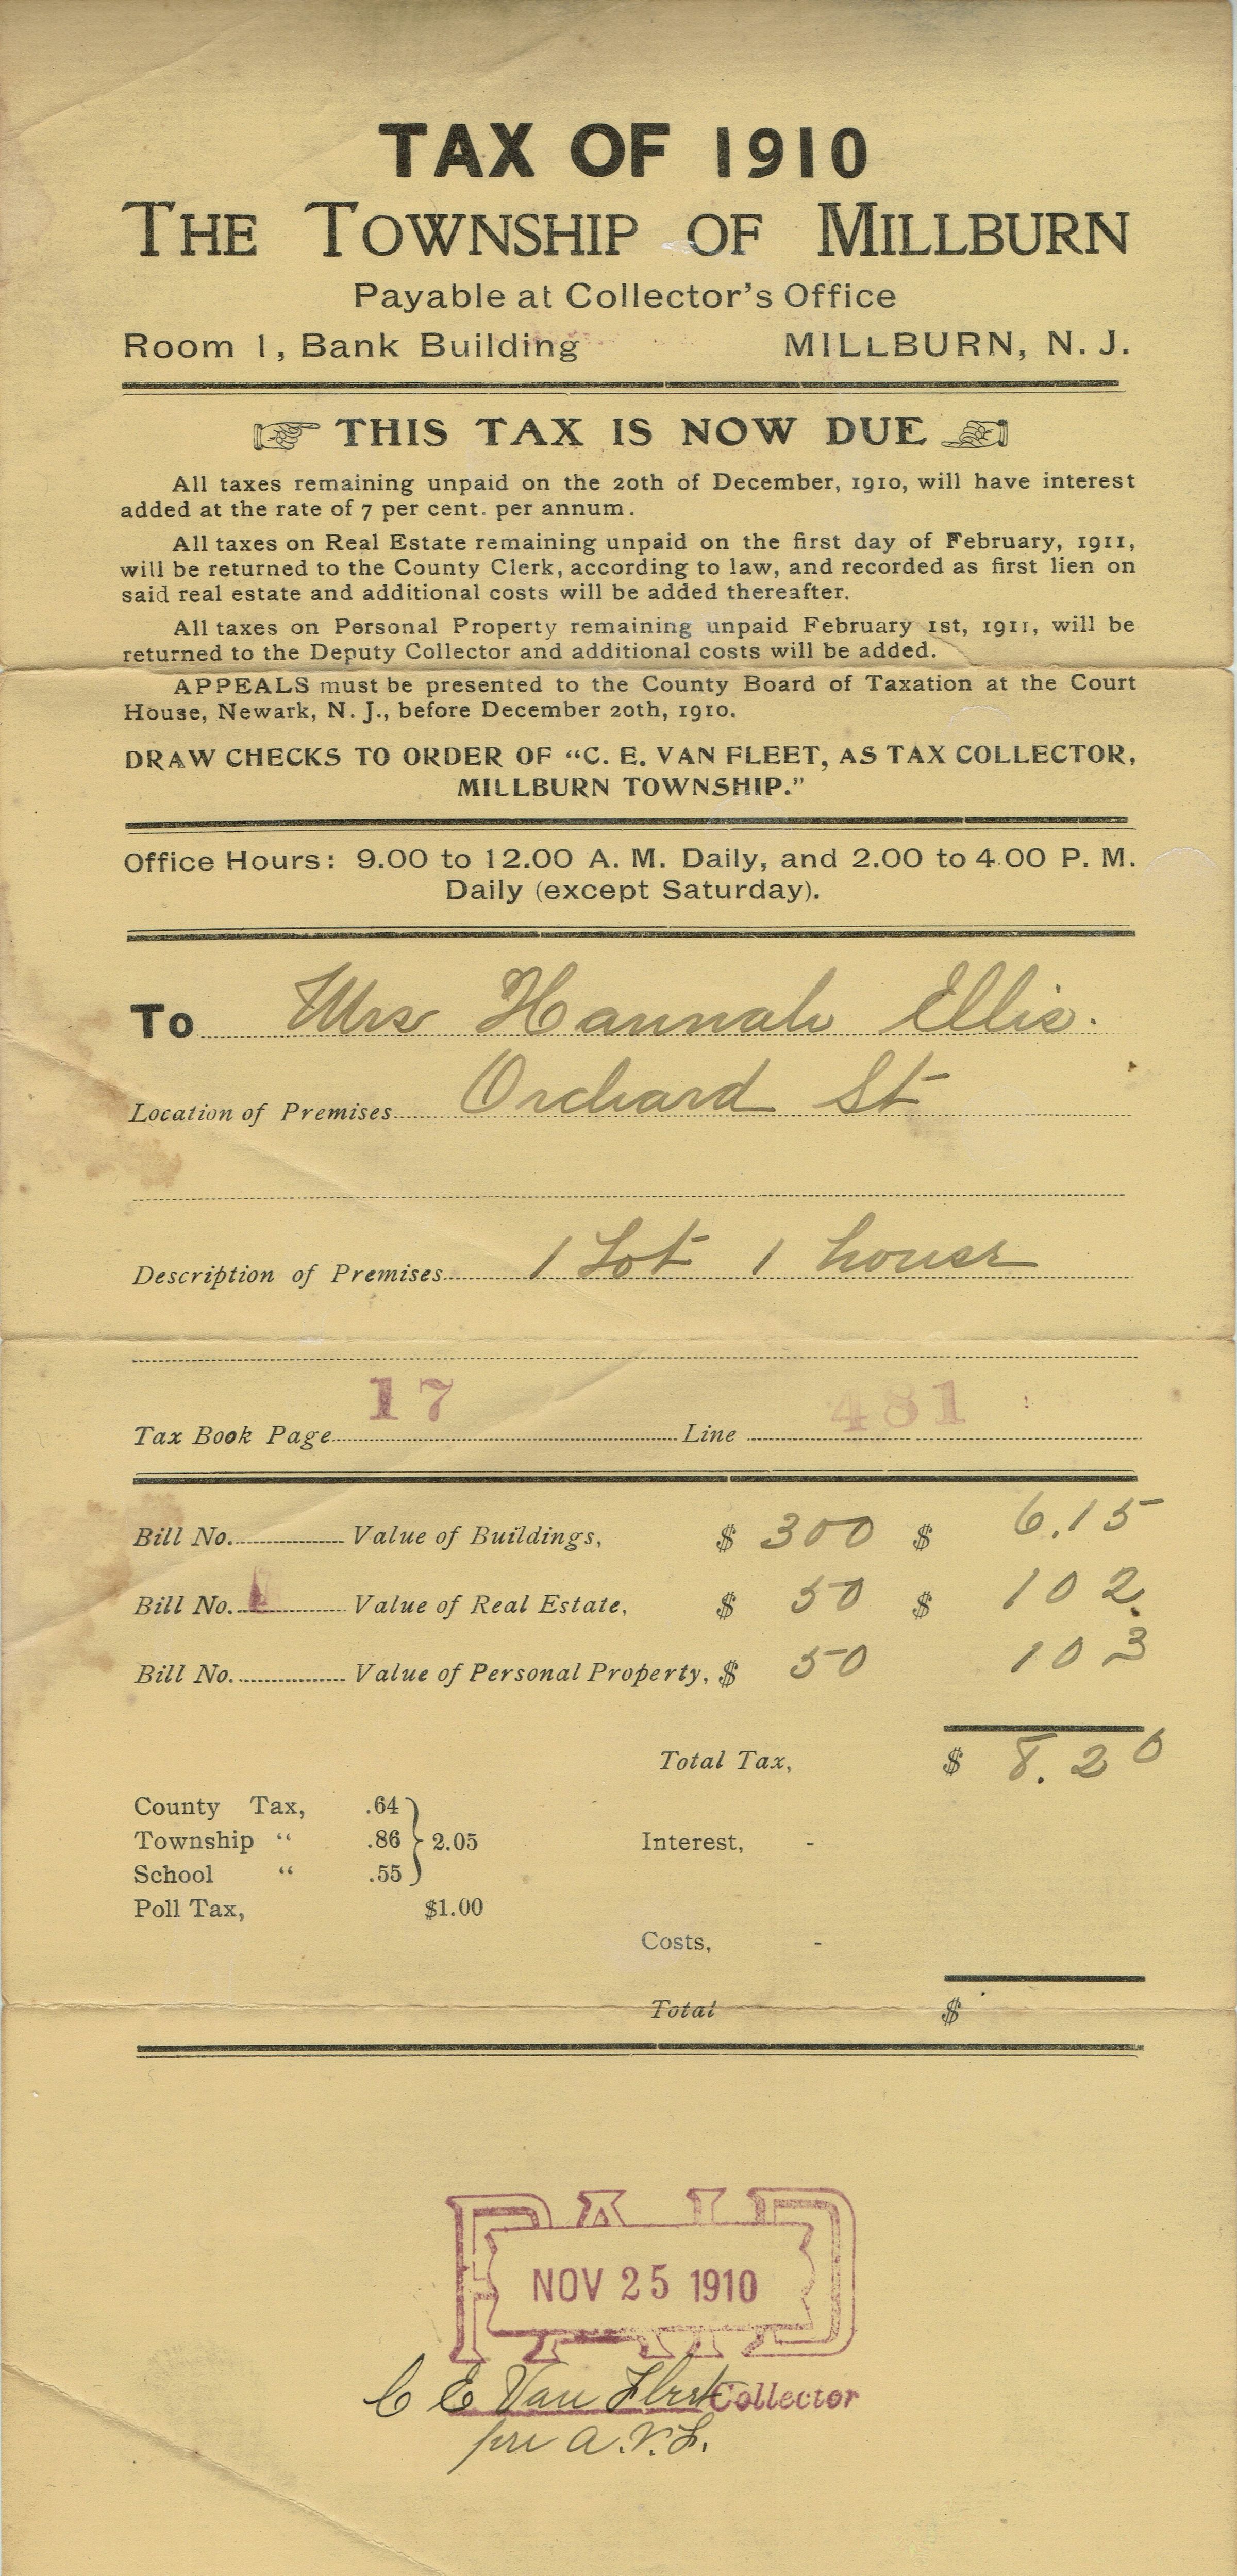 TAX OF 1910
THE TOWNSHIP OF MILLBURN
Payable at Collector's Office
Room 1, Bank Building MILLBURN, N. J.
THIS TAX IS NOW DUE
All taxes remaining unpaid on the 20th of December, 1910, will have interest
added at the rate of 7 per cent. per annum.
All taxes on Real Estate remaining unpaid on the first day of February, 1911,
will be returned to the County Clerk, according to law, and recorded as first lien on
said real estate and additional costs will be added thereafter.
All taxes on Personal Property remaining unpaid February 1st, 1911, will be
returned to the Deputy Collector and additional costs will be added.
APPEALS must be presented to the County Board of Taxation at the Court
House, Newark, N. J., before December 20th, 1910.
DRAW CHECKS TO ORDER OF "C. E. VAN FLEET, AS TAX COLLECTOR,
MILLBURN TOWNSHIP."
Office Hours: 9.00 to 12.00 A. M. Daily, and 2.00 to 4.00 P. M.
Daily (except Saturday).
To Mrs Hannah Ellis.
Location of Premises Orchard St
Description of Premises 1 Lot 1 house
Tax Book Page 17 Line 481
Bill No. Value of Buildings, $ 300 $ 6.15
Bill No. Value of Real Estate, $ 50 $ 102
Bill No. Value of Personal Property, $ 50 103
Total Tax, $ 8.20
County Tax, .64
Township " .86 } 2.05 Interest, -
School " .55
Poll Tax, $1.00
Costs, -
Total $
PAID
NOV 25 1910
C E Van Fleet Collector
per A.V.F.